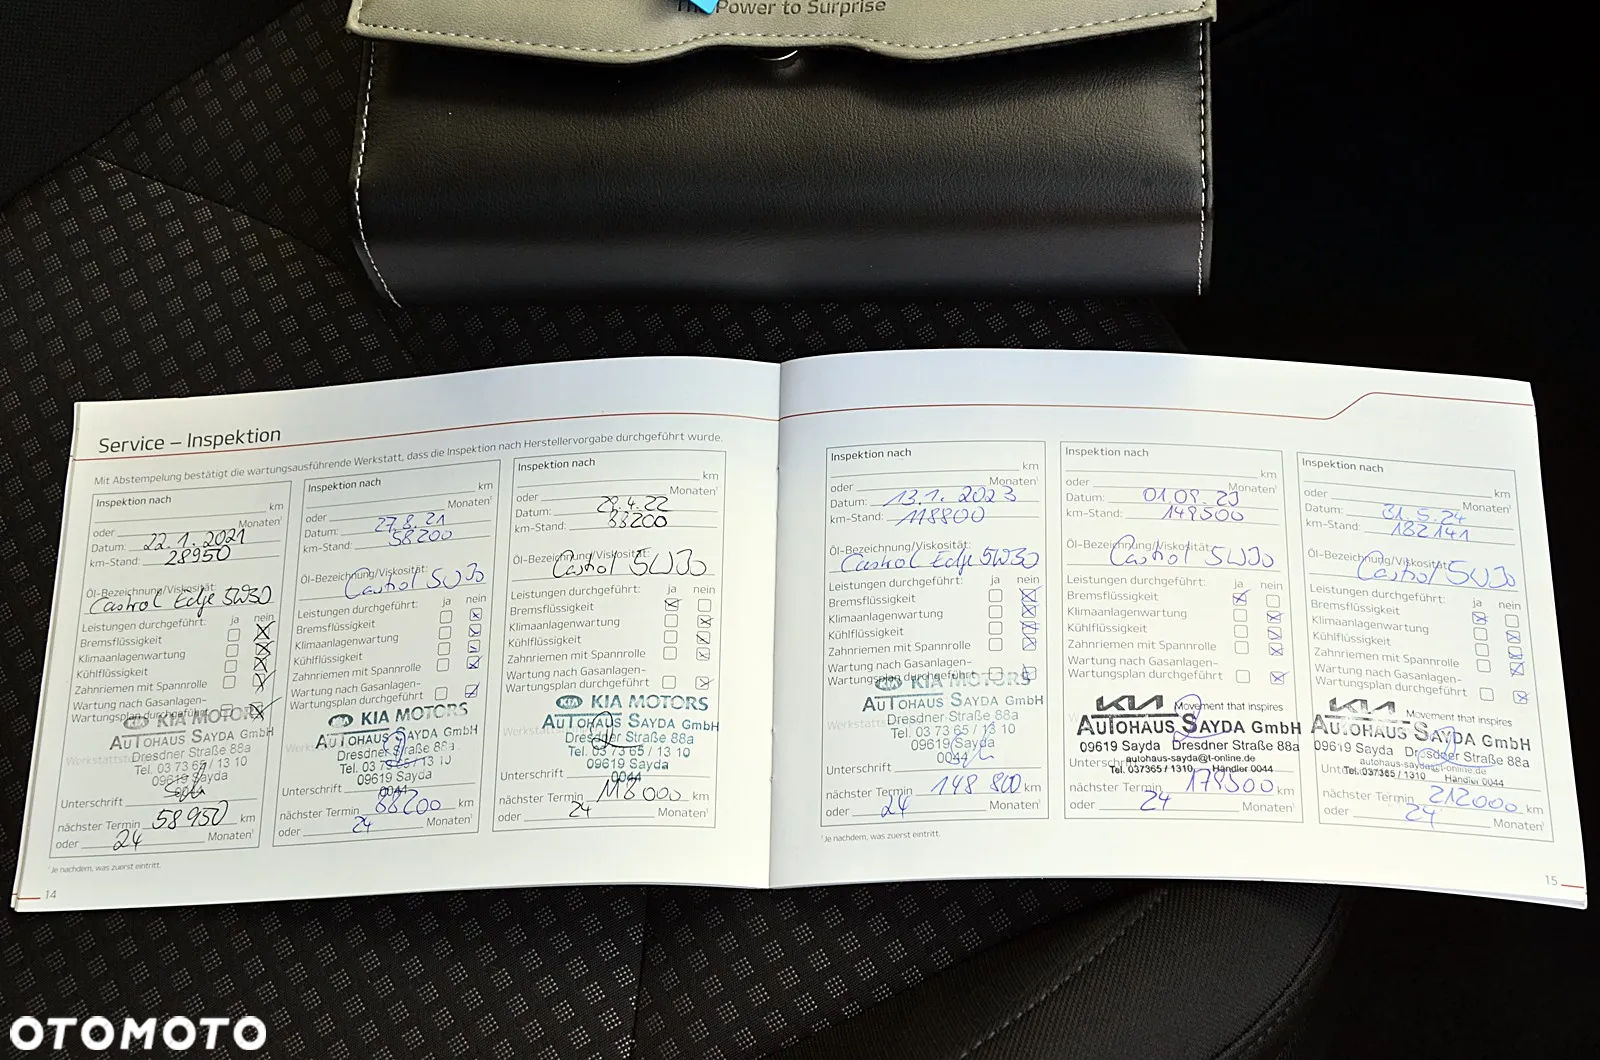 The Power to Surprise
Service – Inspektion
Mit Abstempelung bestätigt die wartungsausführende Werkstatt, dass die Inspektion nach Herstellervorgabe durchgeführt wurde.
Inspektion nach
km
oder Monaten¹
Datum: 22.1.2021
km-Stand: 28950
Öl-Bezeichnung/Viskosität:
Castrol Edge 5W30
Leistungen durchgeführt: ja nein
Bremsflüssigkeit
Klimaanlagenwartung
Kühlflüssigkeit
Zahnriemen mit Spannrolle
Wartung nach Gasanlagen-
Wartungsplan durchgeführt
KIA MOTORS
AUTOHAUS SAYDA GmbH
Dresdner Straße 88a
Tel. 03 73 65 / 13 10
09619 Sayda
0044
Unterschrift
nächster Termin 58950 km
oder 24 Monaten¹
¹Je nachdem, was zuerst eintritt.
14
Inspektion nach
km
oder Monaten¹
Datum: 27.8.21
km-Stand: 58200
Öl-Bezeichnung/Viskosität:
Castrol 5W30
Leistungen durchgeführt: ja nein
Bremsflüssigkeit
Klimaanlagenwartung
Kühlflüssigkeit
Zahnriemen mit Spannrolle
Wartung nach Gasanlagen-
Wartungsplan durchgeführt
KIA MOTORS
AUTOHAUS SAYDA GmbH
Dresdner Straße 88a
Tel. 03 73 65 / 13 10
09619 Sayda
0044
Unterschrift
nächster Termin 88200 km
oder 24 Monaten¹
Inspektion nach
km
oder Monaten¹
Datum: 29.4.22
km-Stand: 88200
Öl-Bezeichnung/Viskosität:
Castrol 5W30
Leistungen durchgeführt: ja nein
Bremsflüssigkeit
Klimaanlagenwartung
Kühlflüssigkeit
Zahnriemen mit Spannrolle
Wartung nach Gasanlagen-
Wartungsplan durchgeführt
KIA MOTORS
AUTOHAUS SAYDA GmbH
Dresdner Straße 88a
Tel. 03 73 65 / 13 10
09619 Sayda
0044
Unterschrift
nächster Termin 118000 km
oder 24 Monaten¹
Inspektion nach
km
oder Monaten¹
Datum: 13.1.2023
km-Stand: 118800
Öl-Bezeichnung/Viskosität:
Castrol Edge 5W30
Leistungen durchgeführt: ja nein
Bremsflüssigkeit
Klimaanlagenwartung
Kühlflüssigkeit
Zahnriemen mit Spannrolle
Wartung nach Gasanlagen-
Wartungsplan durchgeführt
KIA MOTORS
AUTOHAUS SAYDA GmbH
Dresdner Straße 88a
Tel. 03 73 65 / 13 10
09619 Sayda
0044
Unterschrift
nächster Termin 148 800 km
oder 24 Monaten¹
¹Je nachdem, was zuerst eintritt.
Inspektion nach
km
oder Monaten¹
Datum: 01.09.23
km-Stand: 149500
Öl-Bezeichnung/Viskosität:
Castrol 5W30
Leistungen durchgeführt: ja nein
Bremsflüssigkeit
Klimaanlagenwartung
Kühlflüssigkeit
Zahnriemen mit Spannrolle
Wartung nach Gasanlagen-
Wartungsplan durchgeführt
KIA Movement that inspires
AUTOHAUS SAYDA GmbH
09619 Sayda Dresdner Straße 88a
autohaus-sayda@t-online.de
Tel. 037365 / 1310 Händler 0044
nächster Termin 179500 km
oder 24 Monaten¹
Inspektion nach
km
oder Monaten¹
Datum: 31.5.24
km-Stand: 182141
Öl-Bezeichnung/Viskosität:
Castrol 5W30
Leistungen durchgeführt: ja nein
Bremsflüssigkeit
Klimaanlagenwartung
Kühlflüssigkeit
Zahnriemen mit Spannrolle
Wartung nach Gasanlagen-
Wartungsplan durchgeführt
KIA Movement that inspires
AUTOHAUS SAYDA GmbH
09619 Sayda Dresdner Straße 88a
autohaus-sayda@t-online.de
Tel. 037365 / 1310 Händler 0044
nächster Termin 212000 km
oder 24 Monaten¹
15
OTOMOTO